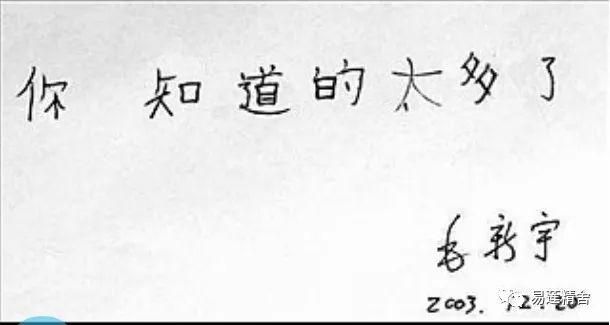 你知道的太多了
毛新宇
2003.12.20
易莲精舍